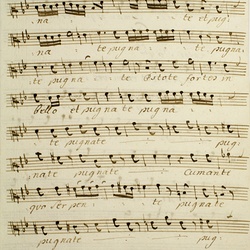 na te et pug:
na te pugna te pugna:
te pugna te Estote fortes in
bello et pugna te pugna:
te pugnate pug:
nate pugnate Cum ante
quo ser pen te pugna te
pugnate pug: